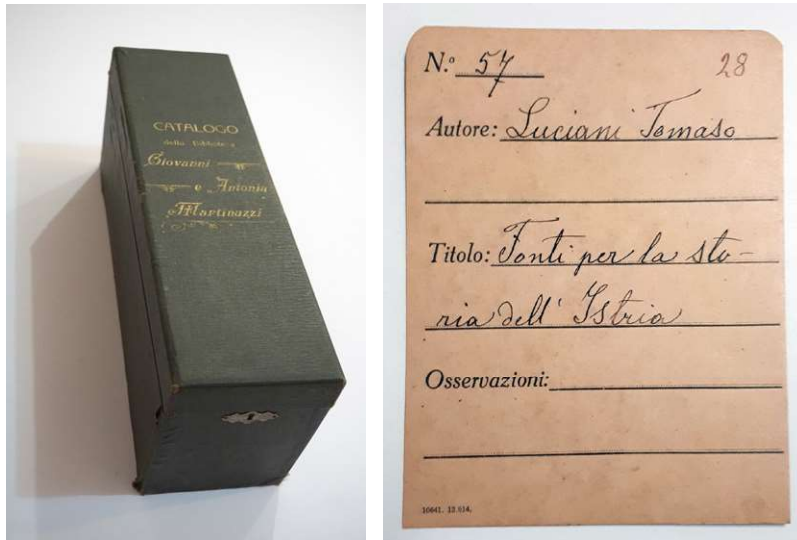 CATALOGO
della Biblioteca
Giovanni
e Antonia
Martinazzi
N.º 57 28
Autore: Luciani Tomaso
Titolo: Fonti per la sto-
ria dell' Istria
Osservazioni:
10641. 13.614.